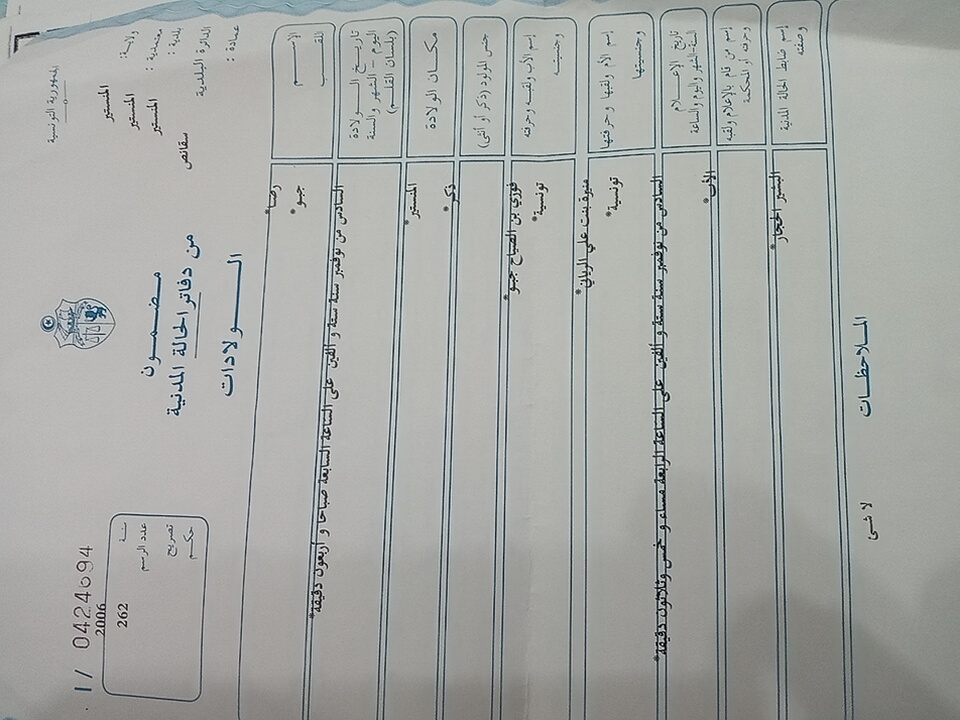 الجمهورية التونسية
ولاية: المنستير
معتمدية: المنستير
بلدية: المنستير
الدائرة البلدية
عمادة: سقانص
مضمون
من دفاتر الحالة المدنية
الولادات
I/ 0424694
سنة 2006
عدد الرسم 262
تصريح
حكم
الإسم رضا*
اللقب جبو*
تاريخ الولادة
اليوم - الشهر والسنة
(بلسان القلم)
السادس من نوفمبر سنة ستة و ألفين على الساعة السابعة صباحا و أربعون دقيقة*
مكان الولادة المنستير*
جنس المولود (ذكر أو أنثى) ذكر*
إسم الأب ولقبه وحرفته فوزي بن الصياح جبو*
وجنسيته تونسية*
إسم الأم ولقبها وحرفتها بنت علي*
وجنسيتها تونسية*
تاريخ الإعلام
السنة-الشهر واليوم والساعة
السادس من نوفمبر سنة ستة و ألفين على الساعة الرابعة مساء و خمس وثلاثون دقيقة*
إسم من قام بالإعلام ولقبه
وحرفته أو المحكمة
الأب*
إسم ضابط الحالة المدنية
وصفته
البشير الحجار*
الملاحظات
لا شئ